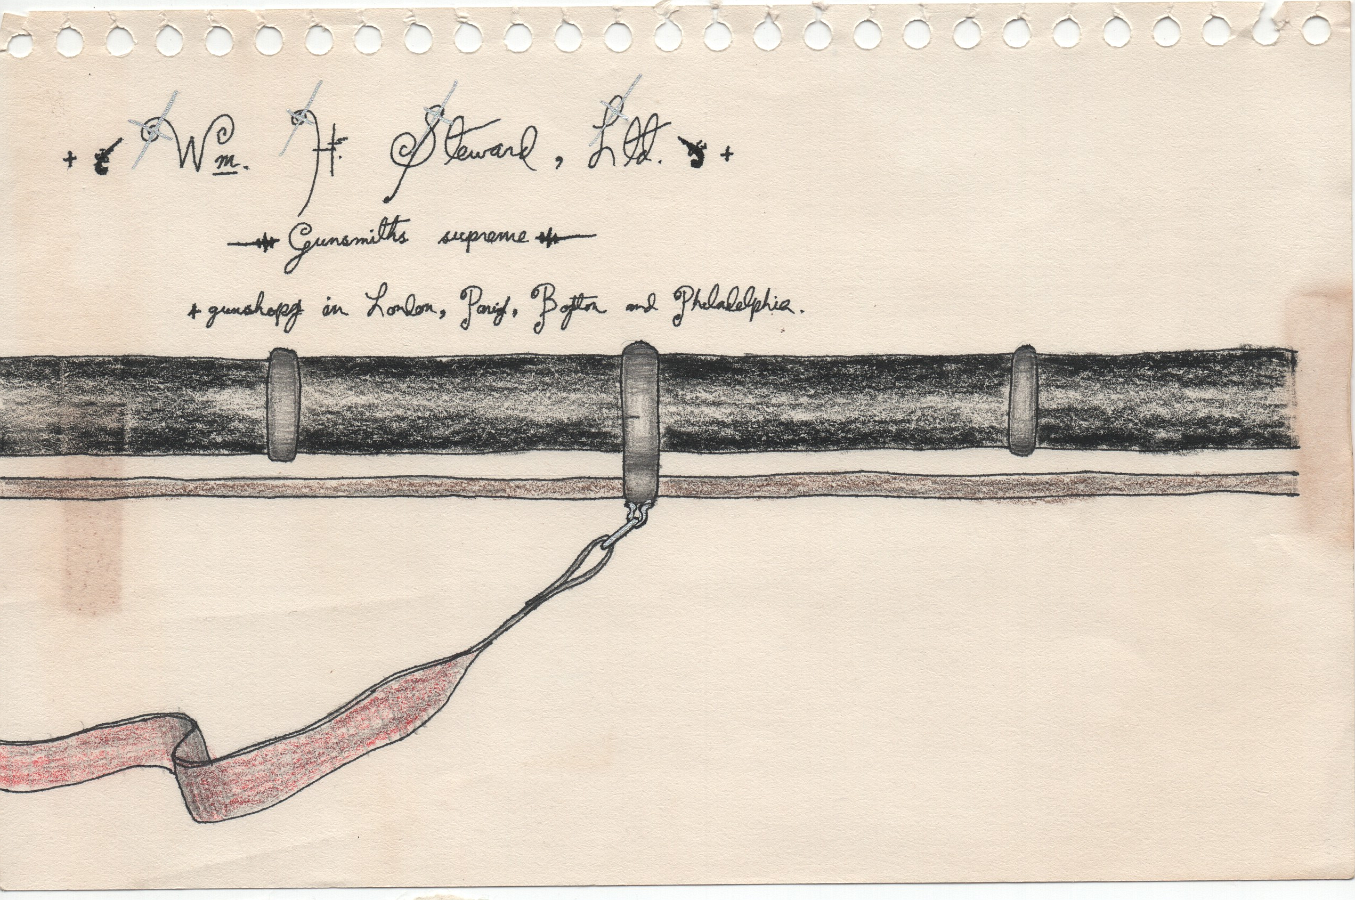 Wm. H. Steward, Ltd.
Gunsmiths supreme
+ gunshops in London, Paris, Boston and Philadelphia.